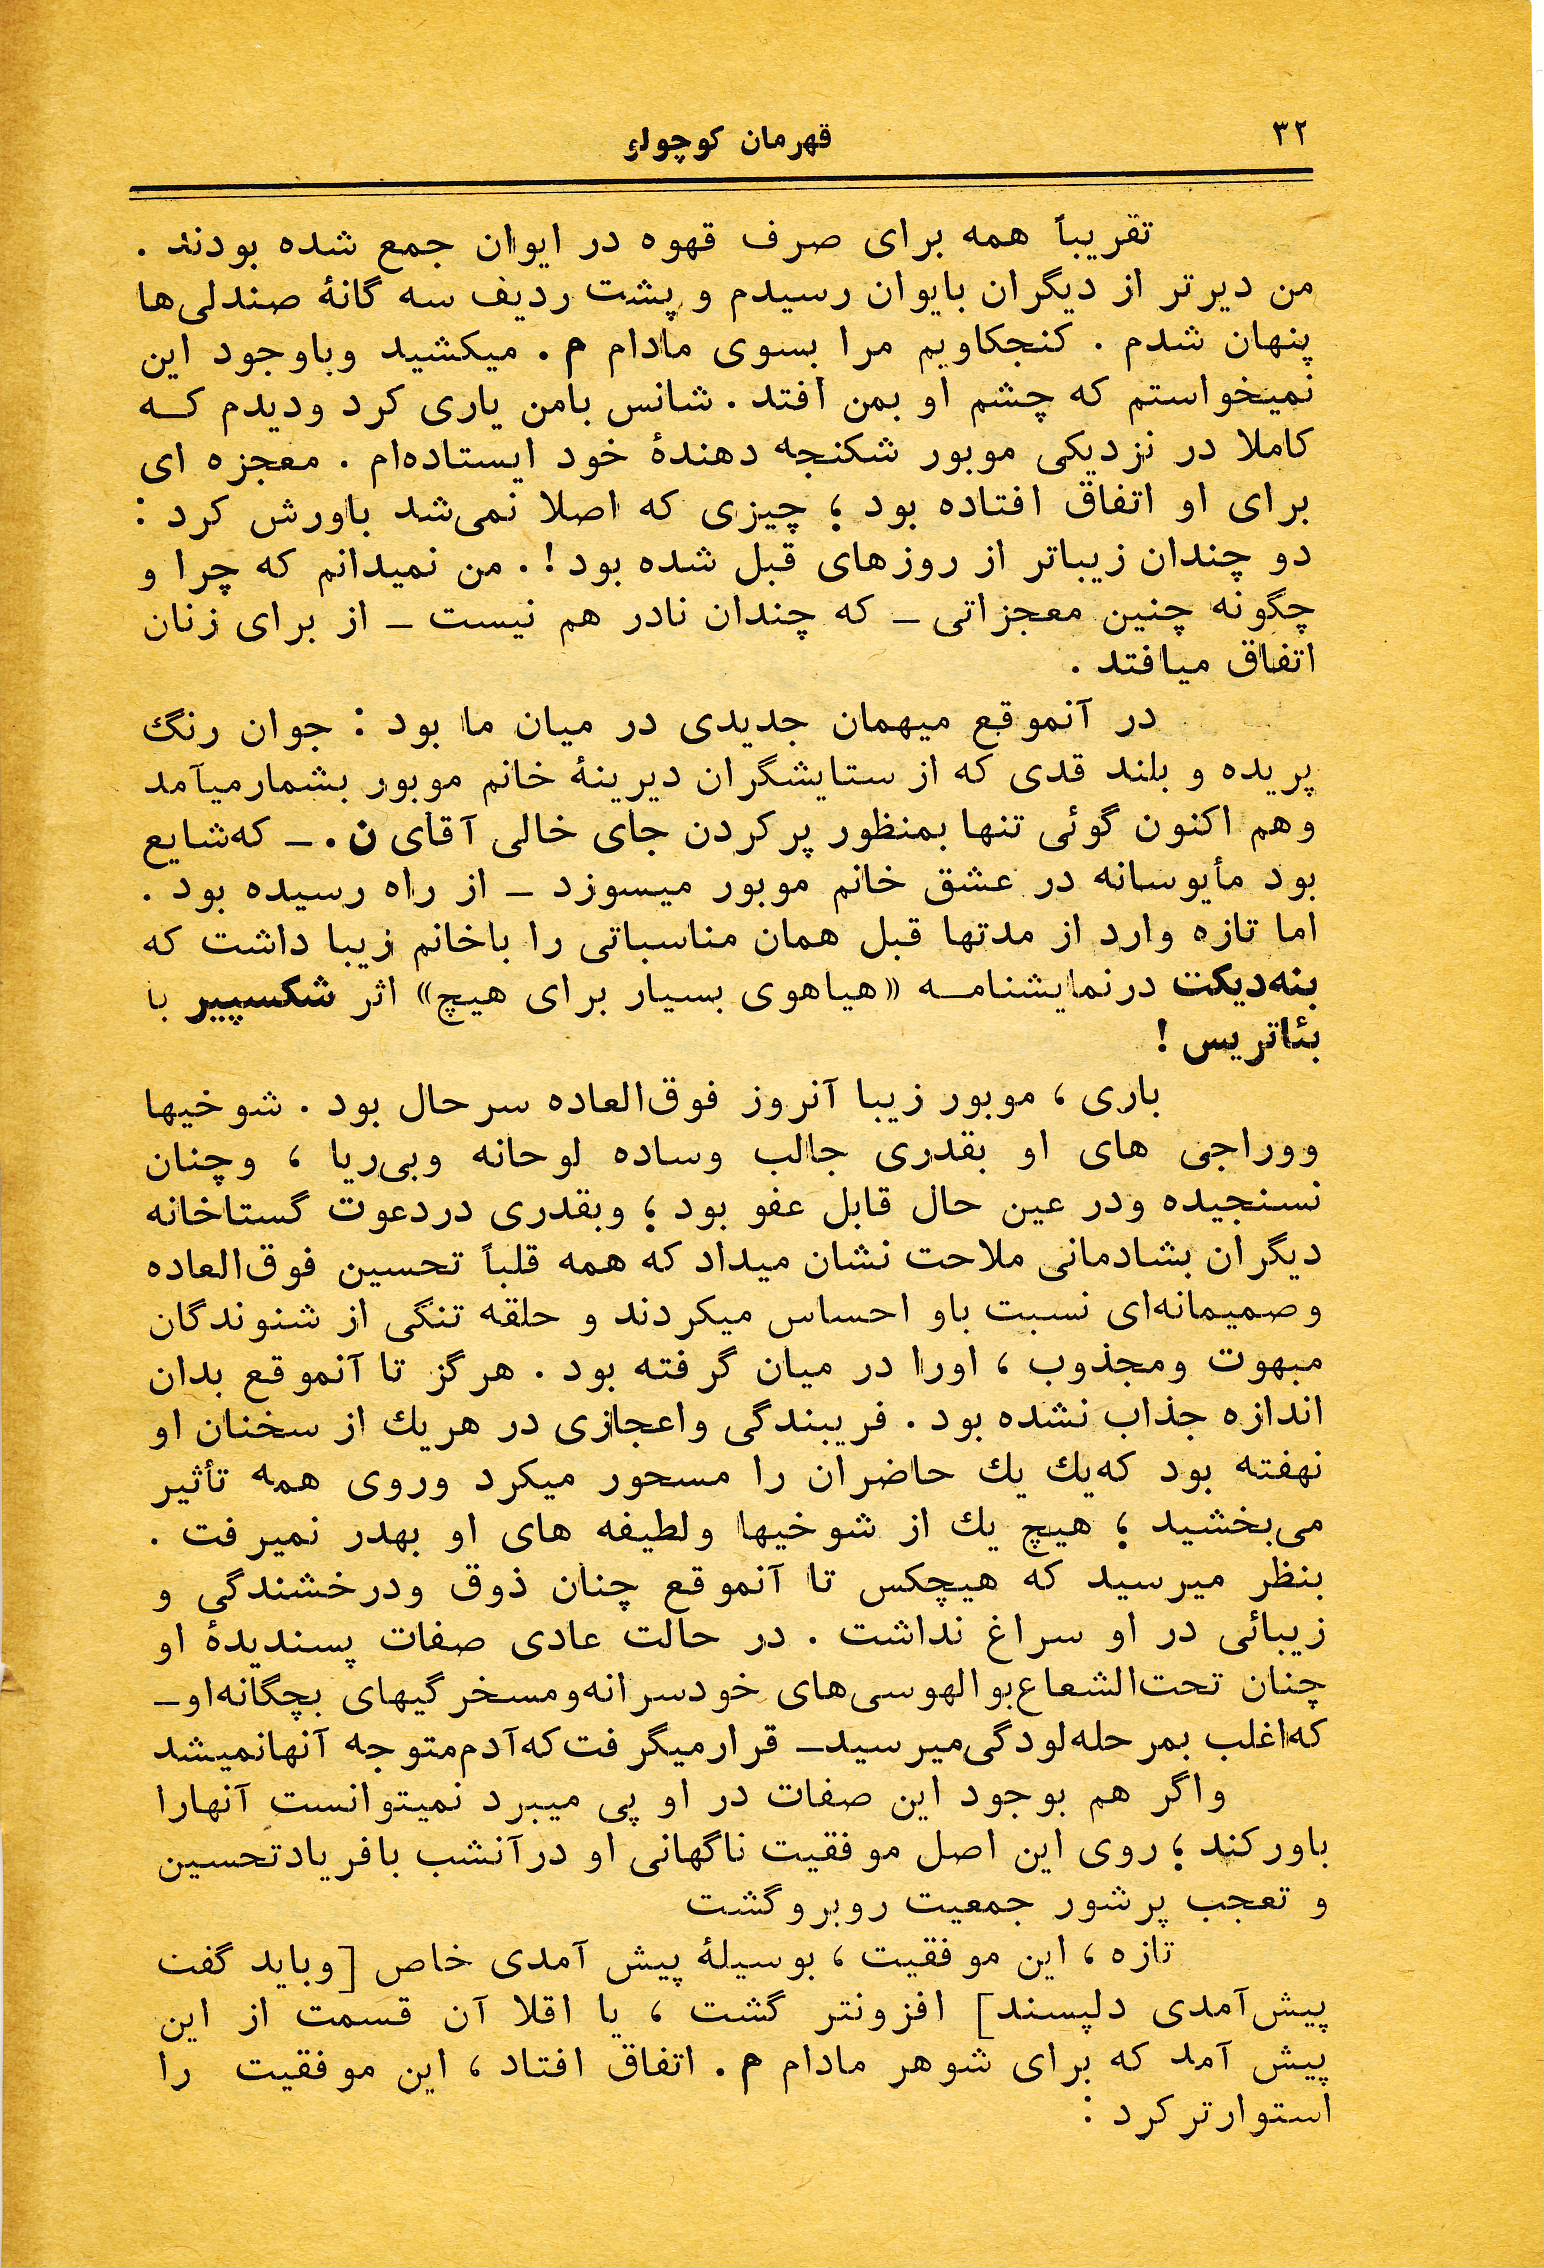 ۳۲
قهرمان کوچولو
تقریباً همه برای صرف قهوه در ایوان جمع شده بودند .
من دیرتر از دیگران بایوان رسیدم و پشت ردیف سه گانهٔ صندلی‌ها
پنهان شدم . کنجکاویم مرا بسوی مادام م . میکشید وباوجود این
نمیخواستم که چشم او بمن افتد . شانس بامن یاری کرد ودیدم کــه
کاملا در نزدیکی موبور شکنجه دهندهٔ خود ایستاده‌ام . معجزه ای
برای او اتفاق افتاده بود ؛ چیزی که اصلا نمی‌شد باورش کرد :
دو چندان زیباتر از روزهای قبل شده بود ! . من نمیدانم که چرا و
چگونه چنین معجزاتی ـ که چندان نادر هم نیست ـ از برای زنان
اتفاق میافتد .
در آنموقع میهمان جدیدی در میان ما بود : جوان رنگ
پریده و بلند قدی که از ستایشگران دیرینهٔ خانم موبور بشمارمیآمد
وهم اکنون گوئی تنها بمنظور پر کردن جای خالی آقای ن . ـ که‌شایع
بود مأیوسانه در عشق خانم موبور میسوزد ـ از راه رسیده بود .
اما تازه وارد از مدتها قبل همان مناسباتی را باخانم زیبا داشت که
بنه‌دیکت درنمایشنامــه «هیاهوی بسیار برای هیچ» اثر شکسپیر با
بئاتریس !
باری ، موبور زیبا آنروز فوق‌العاده سرحال بود . شوخیها
ووراجی های او بقدری جالب وساده لوحانه وبی‌ریا ، وچنان
نسنجیده ودر عین حال قابل عفو بود ؛ وبقدری دردعوت گستاخانه
دیگران بشادمانی ملاحت نشان میداد که همه قلباً تحسین فوق‌العاده
وصمیمانه‌ای نسبت باو احساس میکردند و حلقه تنگی از شنوندگان
مبهوت ومجذوب ، اورا در میان گرفته بود . هرگز تا آنموقع بدان
اندازه جذاب نشده بود . فریبندگی واعجازی در هریك از سخنان او
نهفته بود که‌یك یك حاضران را مسحور میکرد وروی همه تأثیر
می‌بخشید ؛ هیچ یك از شوخیها ولطیفه های او بهدر نمیرفت .
بنظر میرسید که هیچکس تا آنموقع چنان ذوق ودرخشندگی و
زیبائی در او سراغ نداشت . در حالت عادی صفات پسندیدهٔ او
چنان تحت‌الشعاع‌بوالهوسی‌های خودسرانه‌ومسخرگیهای بچگانه‌او ـ
که‌اغلب بمرحله‌لودگی‌میرسید ـ قرارمیگرفت‌که‌آدم‌متوجه آنهانمیشد
واگر هم بوجود این صفات در او پی میبرد نمیتوانست آنهارا
باورکند ؛ روی این اصل موفقیت ناگهانی او درآنشب بافریادتحسین
و تعجب پرشور جمعیت روبرو گشت
تازه ، این موفقیت ، بوسیلهٔ پیش آمدی خاص [وباید گفت
پیش‌آمدی دلپسند] افزونتر گشت ، یا اقلا آن قسمت از این
پیش آمد که برای شوهر مادام م . اتفاق افتاد ، این موفقیت را
استوارترکرد :